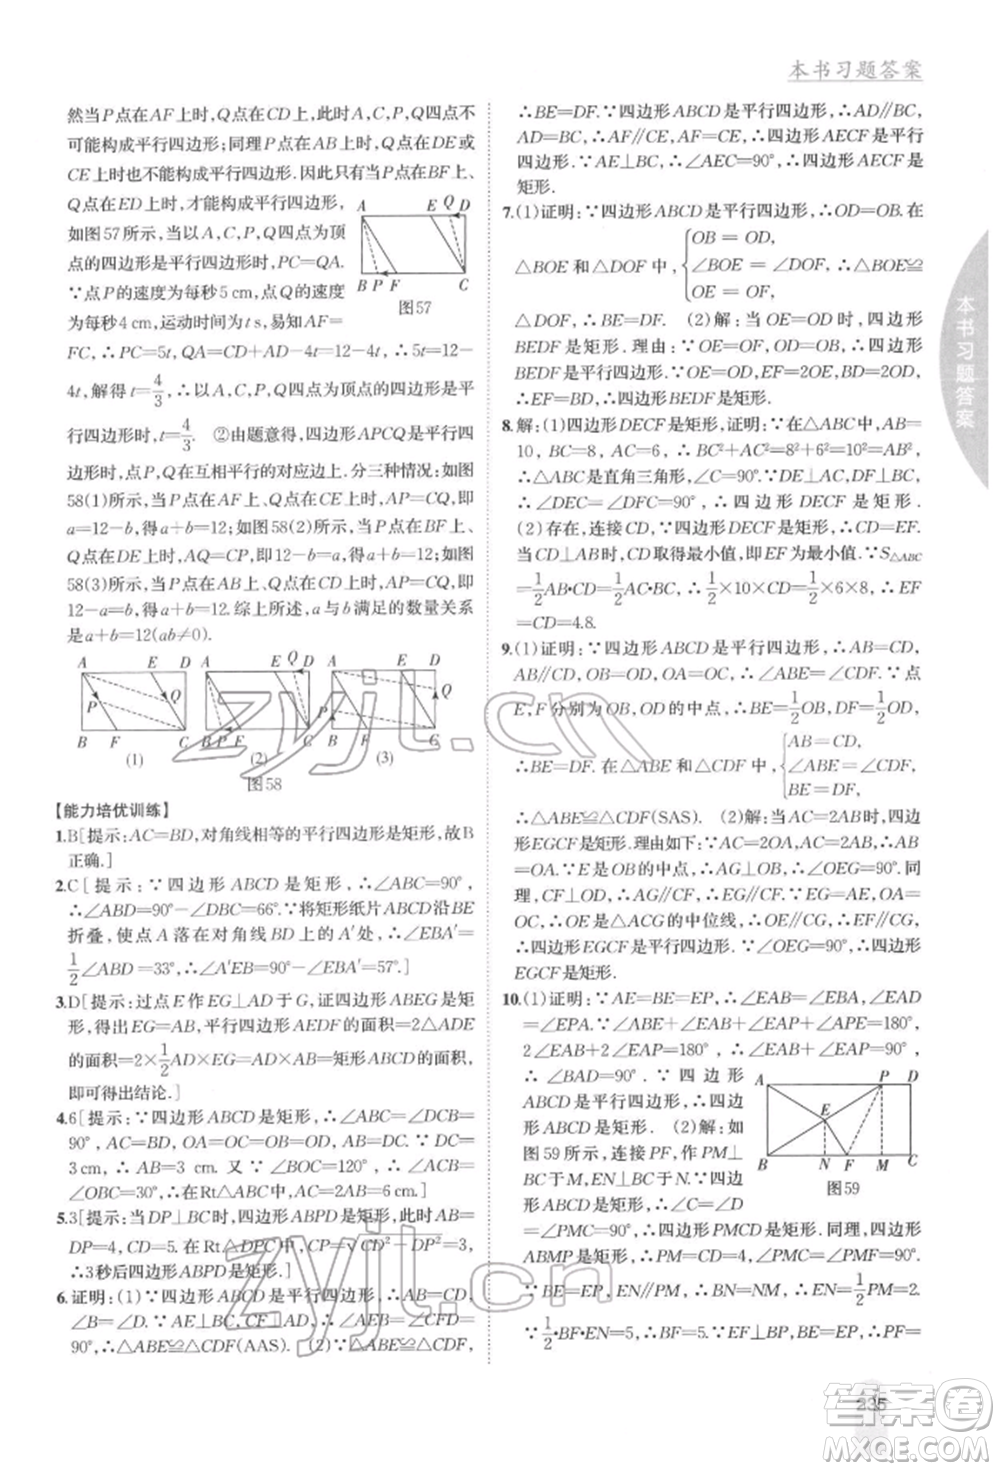 本书习题答案
然当P点在AF上时,Q点在CD上,此时A,C,P,Q四点
不可能构成平行四边形;同理P点在AB上时,Q点在DE或
CE上时,也不能构成平行四边形.因此只有当P点在BF上、
Q点在ED上时,才能构成平行四边形,
如图57所示,当以A,C,P,Q为顶
点的四边形是平行四边形时,PC=QA.
∵点P的速度为每秒5 cm,点Q的速度
为每秒4 cm,运动时间为t s,易知AF=
A E Q D
B P F C
图57
FC,∴PC=5t,QA=CD+AD-4t=12-4t,∴5t=12-
4t,解得t=4/3.∴以A,C,P,Q四点为顶点的四边形是平
行四边形时,t=4/3. ②由题意得,四边形APCQ是平行四
边形时,点P,Q在互相平行的对应边上.分三种情况:如图
58(1)所示,当P点在AF上、Q点在CE上时,AP=CQ,即
a=12-b,得a+b=12;如图58(2)所示,当P点在BF上、
Q点在DE上时,AQ=CP,即12-b=a,得a+b=12;如图
58(3)所示,当P点在AB上、Q点在CD上时,AP=CQ,即
12-a=b,得a+b=12.综上所述,a与b满足的数量关系
是a+b=12(ab≠0).
A E D
P Q
B F C
(1)
A E Q D
B P F C
(2)
A E D
Q
P
B F C
(3)
图58
【能力培优训练】
1.B[提示:AC=BD,对角线相等的平行四边形是矩形,故B
正确.]
2.C[提示:∵四边形ABCD是矩形,∴∠ABC=90°,
∴∠ABD=90°-∠DBC=66°.∵将矩形纸片ABCD沿BE
折叠,使点A落在对角线BD上的A′处,∴∠EBA′=
1/2∠ABD=33°,∴∠EA′B=∠A=90°,∴∠A′EB=57°.]
3.D[提示:过点E作EG⊥AD于G,证四边形ABEG是矩
形,得出EG=AB,平行四边形AEDF的面积=2△ADE
的面积=2×1/2AD×EG=AD×AB=矩形ABCD的面积,
即可得出结论.]
4.6[提示:∵四边形ABCD是矩形,∴∠ABC=∠BCD=
90°,AC=BD,OA=OC,OB=OD,AB=DC,∴DC=
3 cm,∴AB=3 cm.又∵∠BOC=120°,∴∠ACB=
∠OBC=30°,∴在Rt△ABC中,AC=2AB=6 cm.]
5.3[提示:当DP⊥BC时,四边形ABPD是矩形,∵AB=4,
DP=4,CD=5.在Rt△DPC中,PC=3,
∴3秒后四边形ABPD是矩形.]
6.证明:(1)∵四边形ABCD是平行四边形,∴AB=CD,
∠B=∠D.又∵∠BAE=∠DCF,∴∠AEB=∠CFD=
90°,∴△ABE≌△CDF(AAS). (2)∵△ABE≌△CDF,
∴BE=DF.∵四边形ABCD是平行四边形,∴AD∥BC,
AD=BC,∴AF=EC,∴四边形AECF是平行
四边形.∵AE⊥BC,∴∠AEC=90°,∴四边形AECF是
矩形.
7.(1)证明:∵四边形ABCD是平行四边形,∴OD=OB.在
△BOE和△DOF中,{OB=OD, ∠BOE=∠DOF, OE=OF, ∴△BOE≌
△DOF,∴BE=DF. (2)解:当OE=OD时,四边形
BEDF是矩形.理由:∵OE=OF,∴四边形
BEDF是平行四边形.∵OE=OD,∴OE=OF=OB=OD,
∴EF=BD,∴平行四边形BEDF是矩形.
8.解:(1)四边形DECF是矩形,证明:∵在△ABC中,AB=
10,BC=8,AC=6,∴BC²+AC²=8²+6²=10²=AB²,
∴△ABC是直角三角形,∠C=90°.∵DE⊥BC,DF⊥AC,
∴∠DEC=∠DFC=90°,∴四边形DECF是矩形.
(2)存在,连接CD,∵四边形DECF是矩形,∴CD=EF.
当CD⊥AB时,CD取得最小值,即EF为最小值.∵S△ABC
=1/2AB·CD=1/2AC·BC,∴1/2×10×CD=1/2×6×8,∴EF
=CD=4.8.
9.(1)证明:∵四边形ABCD是平行四边形,∴AB=CD,
AB∥CD,OB=OD,OA=OC,∴∠ABE=∠CDF.∵点
E,F分别为OB,OD的中点,∴BE=1/2OB,DF=1/2OD,
∴BE=DF.在△ABE和△CDF中,{AB=CD, ∠ABE=∠CDF, BE=DF,
∴△ABE≌△CDF(SAS). (2)解:当AC=2AB时,四边形
EGCF是矩形.理由如下:∵AC=2OA,AC=2AB,∴AB
=OA.∵E是OB的中点,∴AG⊥OB,∴∠OEG=90°.同
理,CF⊥OD,∴AG∥CF,∴EG∥CF.∵EG=AE,OA=
OC,∴OE是△ACG的中位线,∴OE∥CG,∴EF∥CG,
∴四边形EGCF是平行四边形.∵∠OEG=90°,∴四边形
EGCF是矩形.
10.(1)证明:∵AE=BE=EP,∴∠EAB=∠EBA,∠EAP
=∠EPA.∵∠EAB+∠EBA+∠EAP+∠APE=180°,∴
2∠EAB+2∠EAP=180°,∴∠EAB+∠EAP=90°,∴
∠BAD=90°.∵四边形
ABCD是平行四边形,∴四边
形ABCD是矩形. (2)解:如
图59所示,连接PF,作PM⊥
BC于M,EN⊥BC于N.∵四
边形ABCD是矩形,∴∠C=∠D=90°.∵∠PMC=90°,∴∠C=∠D
=∠PMC=90°,∴四边形PMCD是矩形.同理,四边形
ABMP是矩形,∴PM=CD,∠PMC=∠PMF=90°.
∵BE=PE,EN∥PM,∴BN=NM,∴EN=1/2PM=2.
∵1/2·BF·EN=5,∴BF=5.∵
A P D
E
B N F M C
图59
本书习题答案
235
答案圈
MXQE.COM
zyjl.cn
zyjl.cn